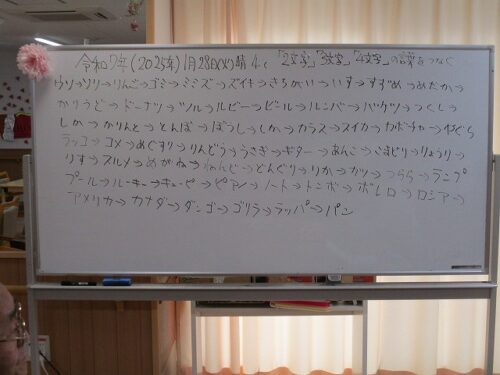 令和7年(2025年)1月28日(火)晴 4.c 「2文字」「3文字」「4文字」の言葉をつなぐ
ウリ→ソリ→りんご→ゴミ→ミミズ→ズイキ→きちがい→いす→すずめ→めだか→
かりうど→ドーナツ→ツル→ルビー→ビール→ルンバ→バケツ→つくし→
しか→かりんと→とんぼ→ぼうし→しか→カラス→スイカ→カボチャ→やぐら
ラッコ→コメ→めぐすり→りんどう→うさぎ→ギター→あんこ→こまどり→りょうり→
りす→スルメ→めがね→ねんど→どんぐり→りか→カツ→つらら→ランプ
プール→ルーキー→キューピー→ピアノ→ノート→トンボ→ボレロ→ロシア→
アメリカ→カナダ→ダンゴ→ゴリラ→ラッパ→パン